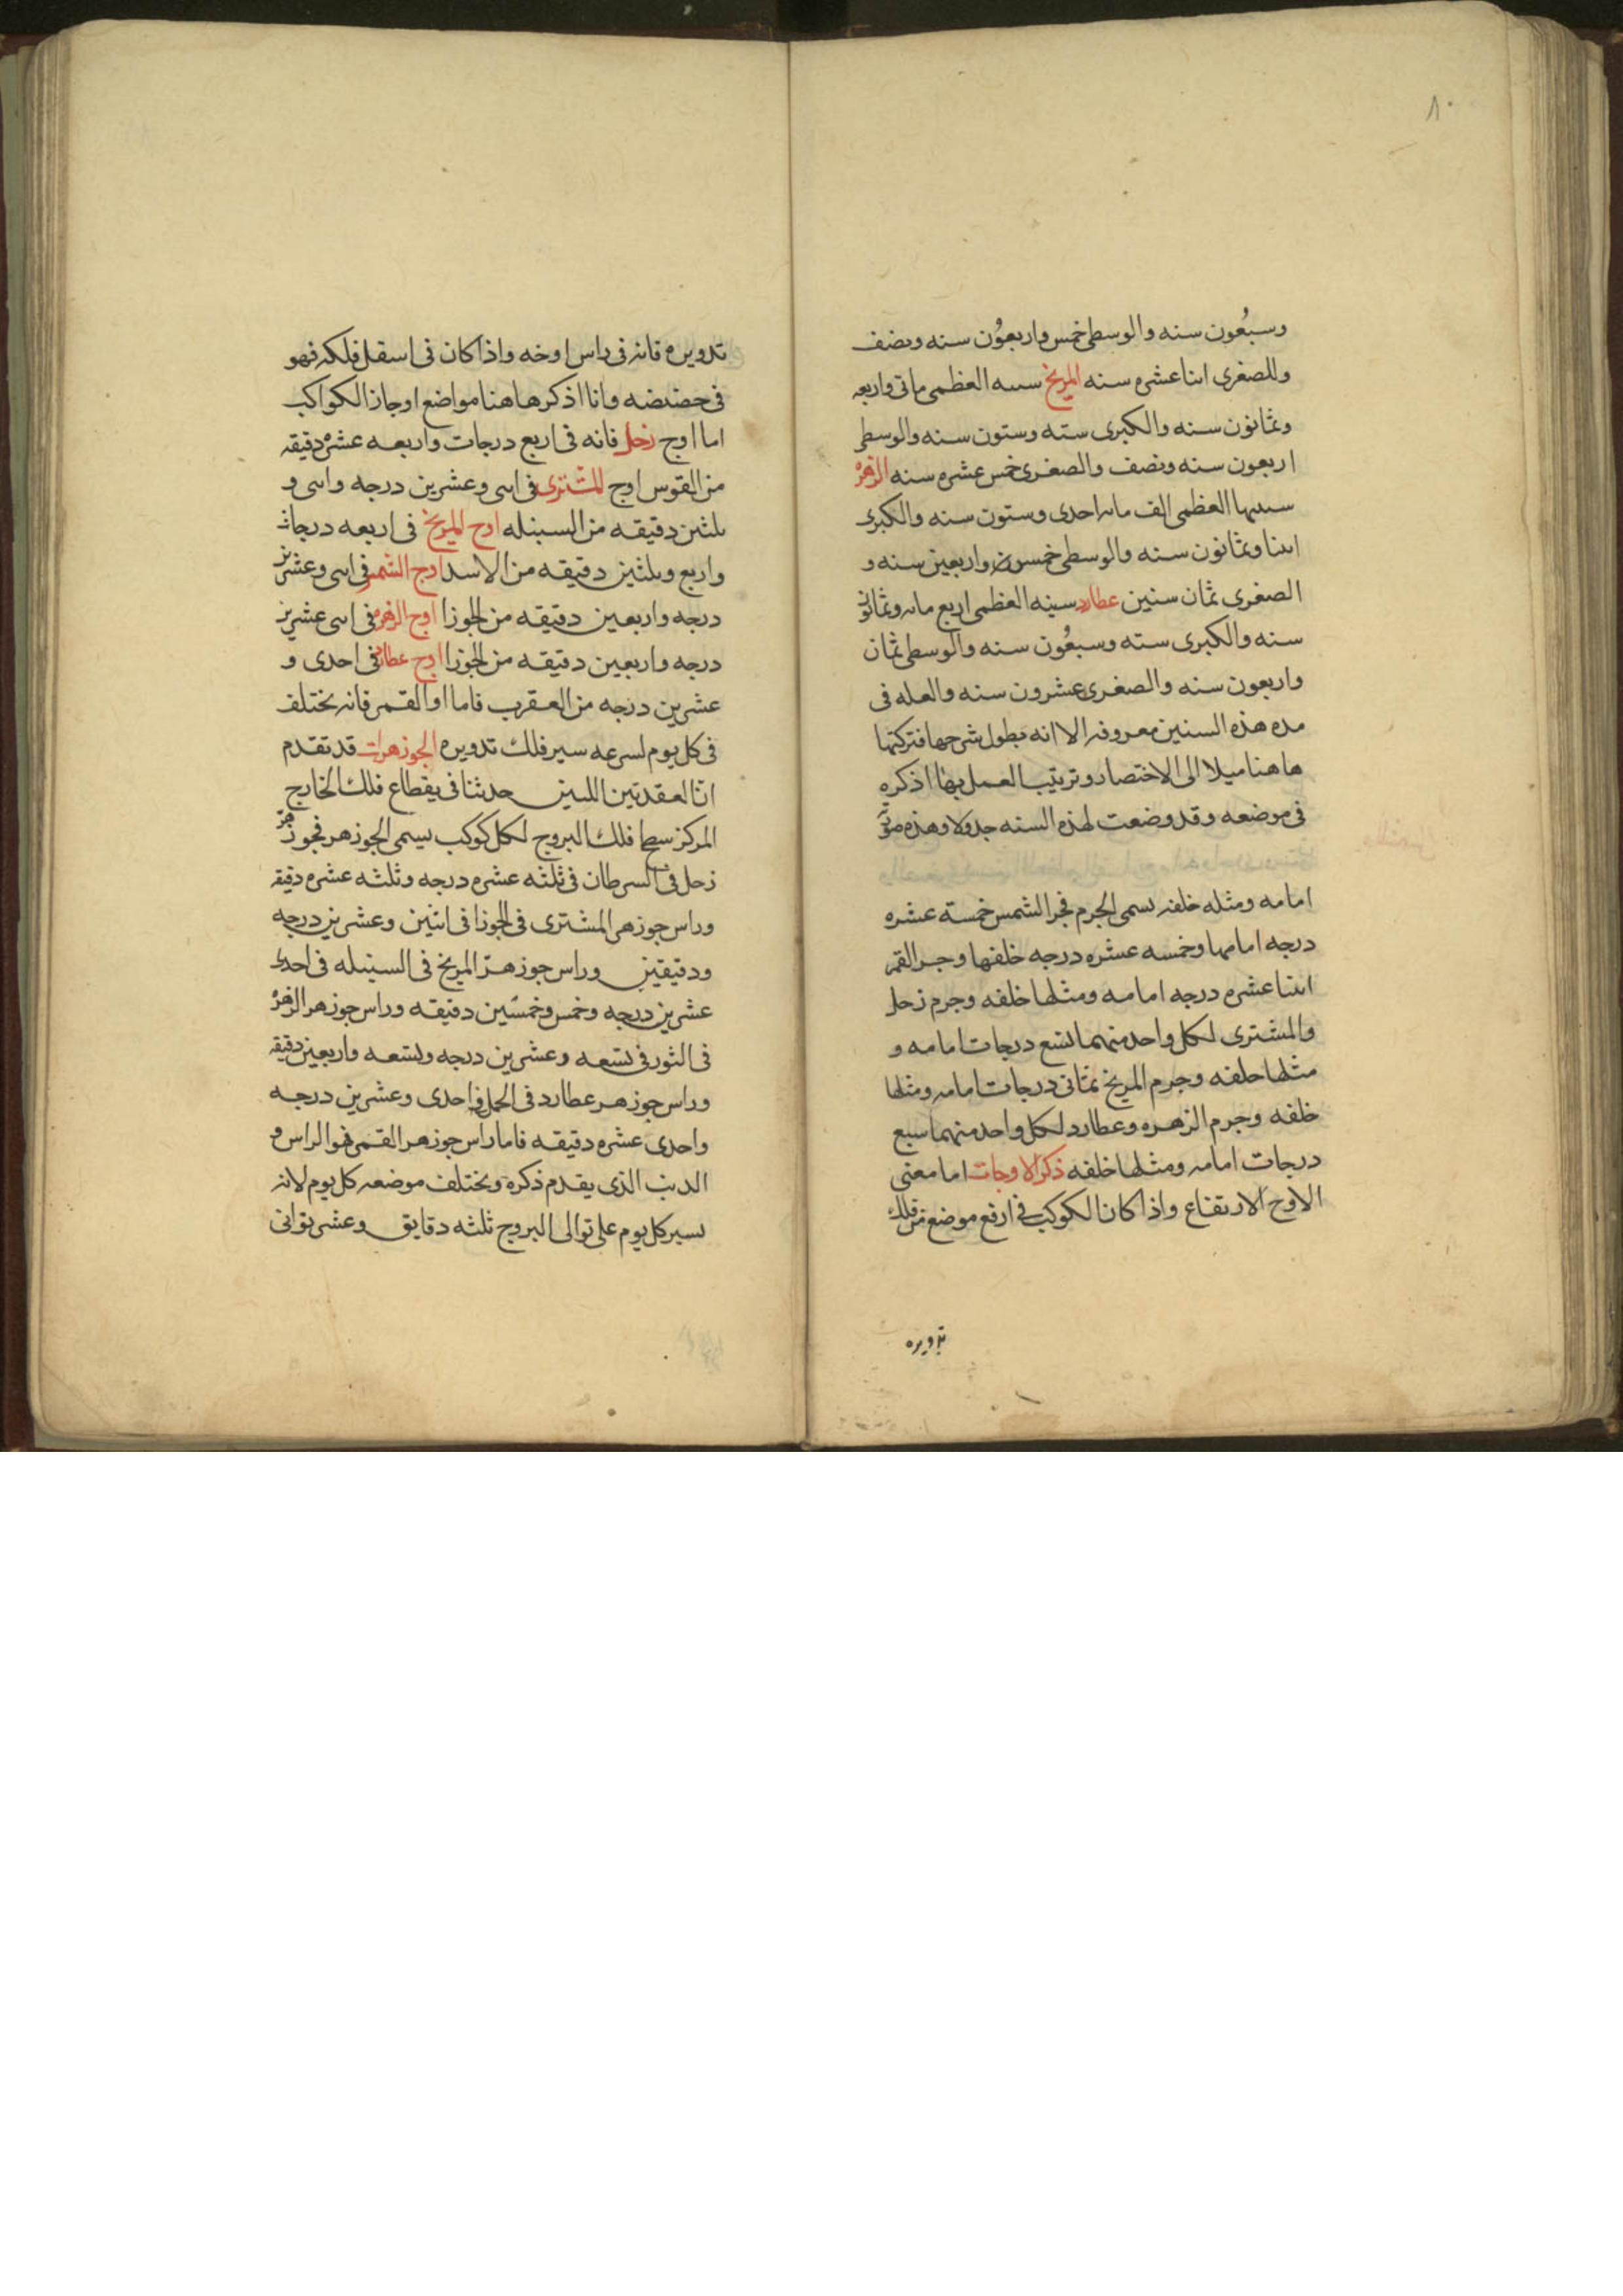 ٨٠
وسبعون سنه والوسطى خمس واربعون سنه ونصف
وللصغرى اثنا عشره سنه المريخ سنيه العظمى ماتى واربعه
وثمانون سنه والكبرى سته وستون سنه والوسطى
اربعون سنه ونصف والصغرى خمس عشره سنه الزهره
سنيها العظمى الف مائه احدى وستون سنه والكبرى
اثنا وثمانون سنه والوسطى خمس واربعين سنه و
الصغرى ثمان سنين عطارد سنيه العظمى اربع مائه وثمانون
سنه والكبرى سته وسبعون سنه والوسطى ثمان
واربعون سنه والصغرى عشرون سنه والعله فى
مده هذه السنين معروفه الا انه يطول شرحها فتركتها
هاهنا ميلا الى الاختصار وترتيب العمل بها اذكره
فى موضعه وقد وضعت لهذه السنه جدولا وهذه صورته
امامه ومثله خلفه يسمى الجرم فجر الشمس خمسة عشره
درجه امامها وخمسه عشره درجه خلفها وجر القمر
اثنتا عشره درجه امامه ومثلها خلفه وجرم زحل
والمشترى لكل واحد منهما تسع درجات امامه و
مثلها خلفه وجرم المريخ ثمانى درجات امامه ومثلها
خلفه وجرم الزهره وعطارد لكل واحد منهما سبع
درجات امامه ومثلها خلفه ذكر الاوجات اما معنى
الاوج الارتفاع واذا كان الكوكب فى ارفع موضع من فلك
تدويره
تدويره فانه فى راس اوخه واذا كان فى اسفل فلكه فهو
فى حضيضه وانا اذكرها هنا مواضع اوجاز الكواكب
اما اوج زحل فانه فى اربع درجات واربعه عشره دقيقه
من القوس اوج المشترى فى اثنى وعشرين درجه واثنى و
ثلثين دقيقه من السنبله اوج المريخ فى اربعه درجات
واربع وثلثين دقيقه من الاسد اوج الشمس فى اثنى وعشرين
درجه واربعين دقيقه من الجوزا اوج الزهره فى اثنى عشرين
درجه واربعين دقيقه من الجوزا اوج عطارد فى احدى و
عشرين درجه من العقرب فاما او القمر فانه يختلف
فى كل يوم لسرعه سير فلك تدويره الجوزهرات قد تقدم
ان العقدتين اللتين حدثتا فى يقطاع فلك الخارج
المركز سطح فلك البروج لكل كوكب يسمى الجوزهر فجوزهر
زحل فى السرطان فى ثلثه عشره درجه وثلثه عشره دقيقه
وراس جوزهر المشترى فى الجوزا فى اثنين وعشرين درجه
ودقيقتين وراس جوزهر المريخ فى السنبله فى احدى
عشرين درجه وخمس وخمسين دقيقه وراس جوزهر الزهره
فى الثور فى تسعه وعشرين درجه وتسعه واربعين دقيقه
وراس جوزهر عطارد فى الحمل فى احدى وعشرين درجه
واحدى عشره دقيقه فاما راس جوزهر القمر فهو الراس و
الذنب الذى يقدم ذكره ويختلف موضعه كل يوم لانه
يسير كل يوم على توالى البروج ثلثه دقايق وعشر ثوانى